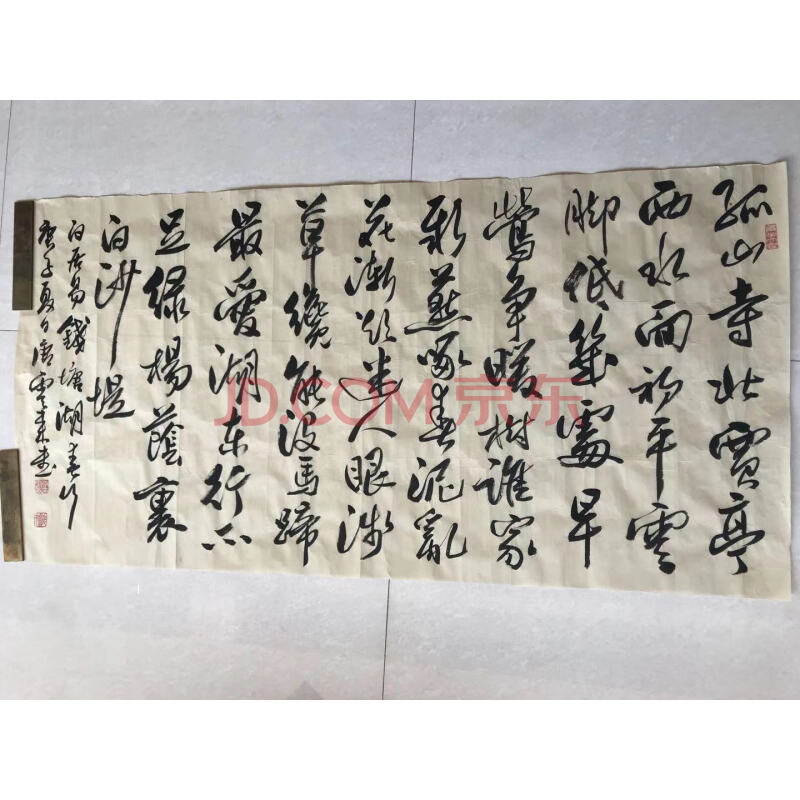 孤山寺北賈亭
西水面初平雲
脚低幾處早
鶯争暖樹誰家
新燕啄春泥亂
花漸欲迷人眼淺
草纔能没馬蹄
最愛湖东行不
足緑楊蔭裏
白沙堤
白居易錢塘湖春行
庚子夏日雲来書
JD.COM 京东